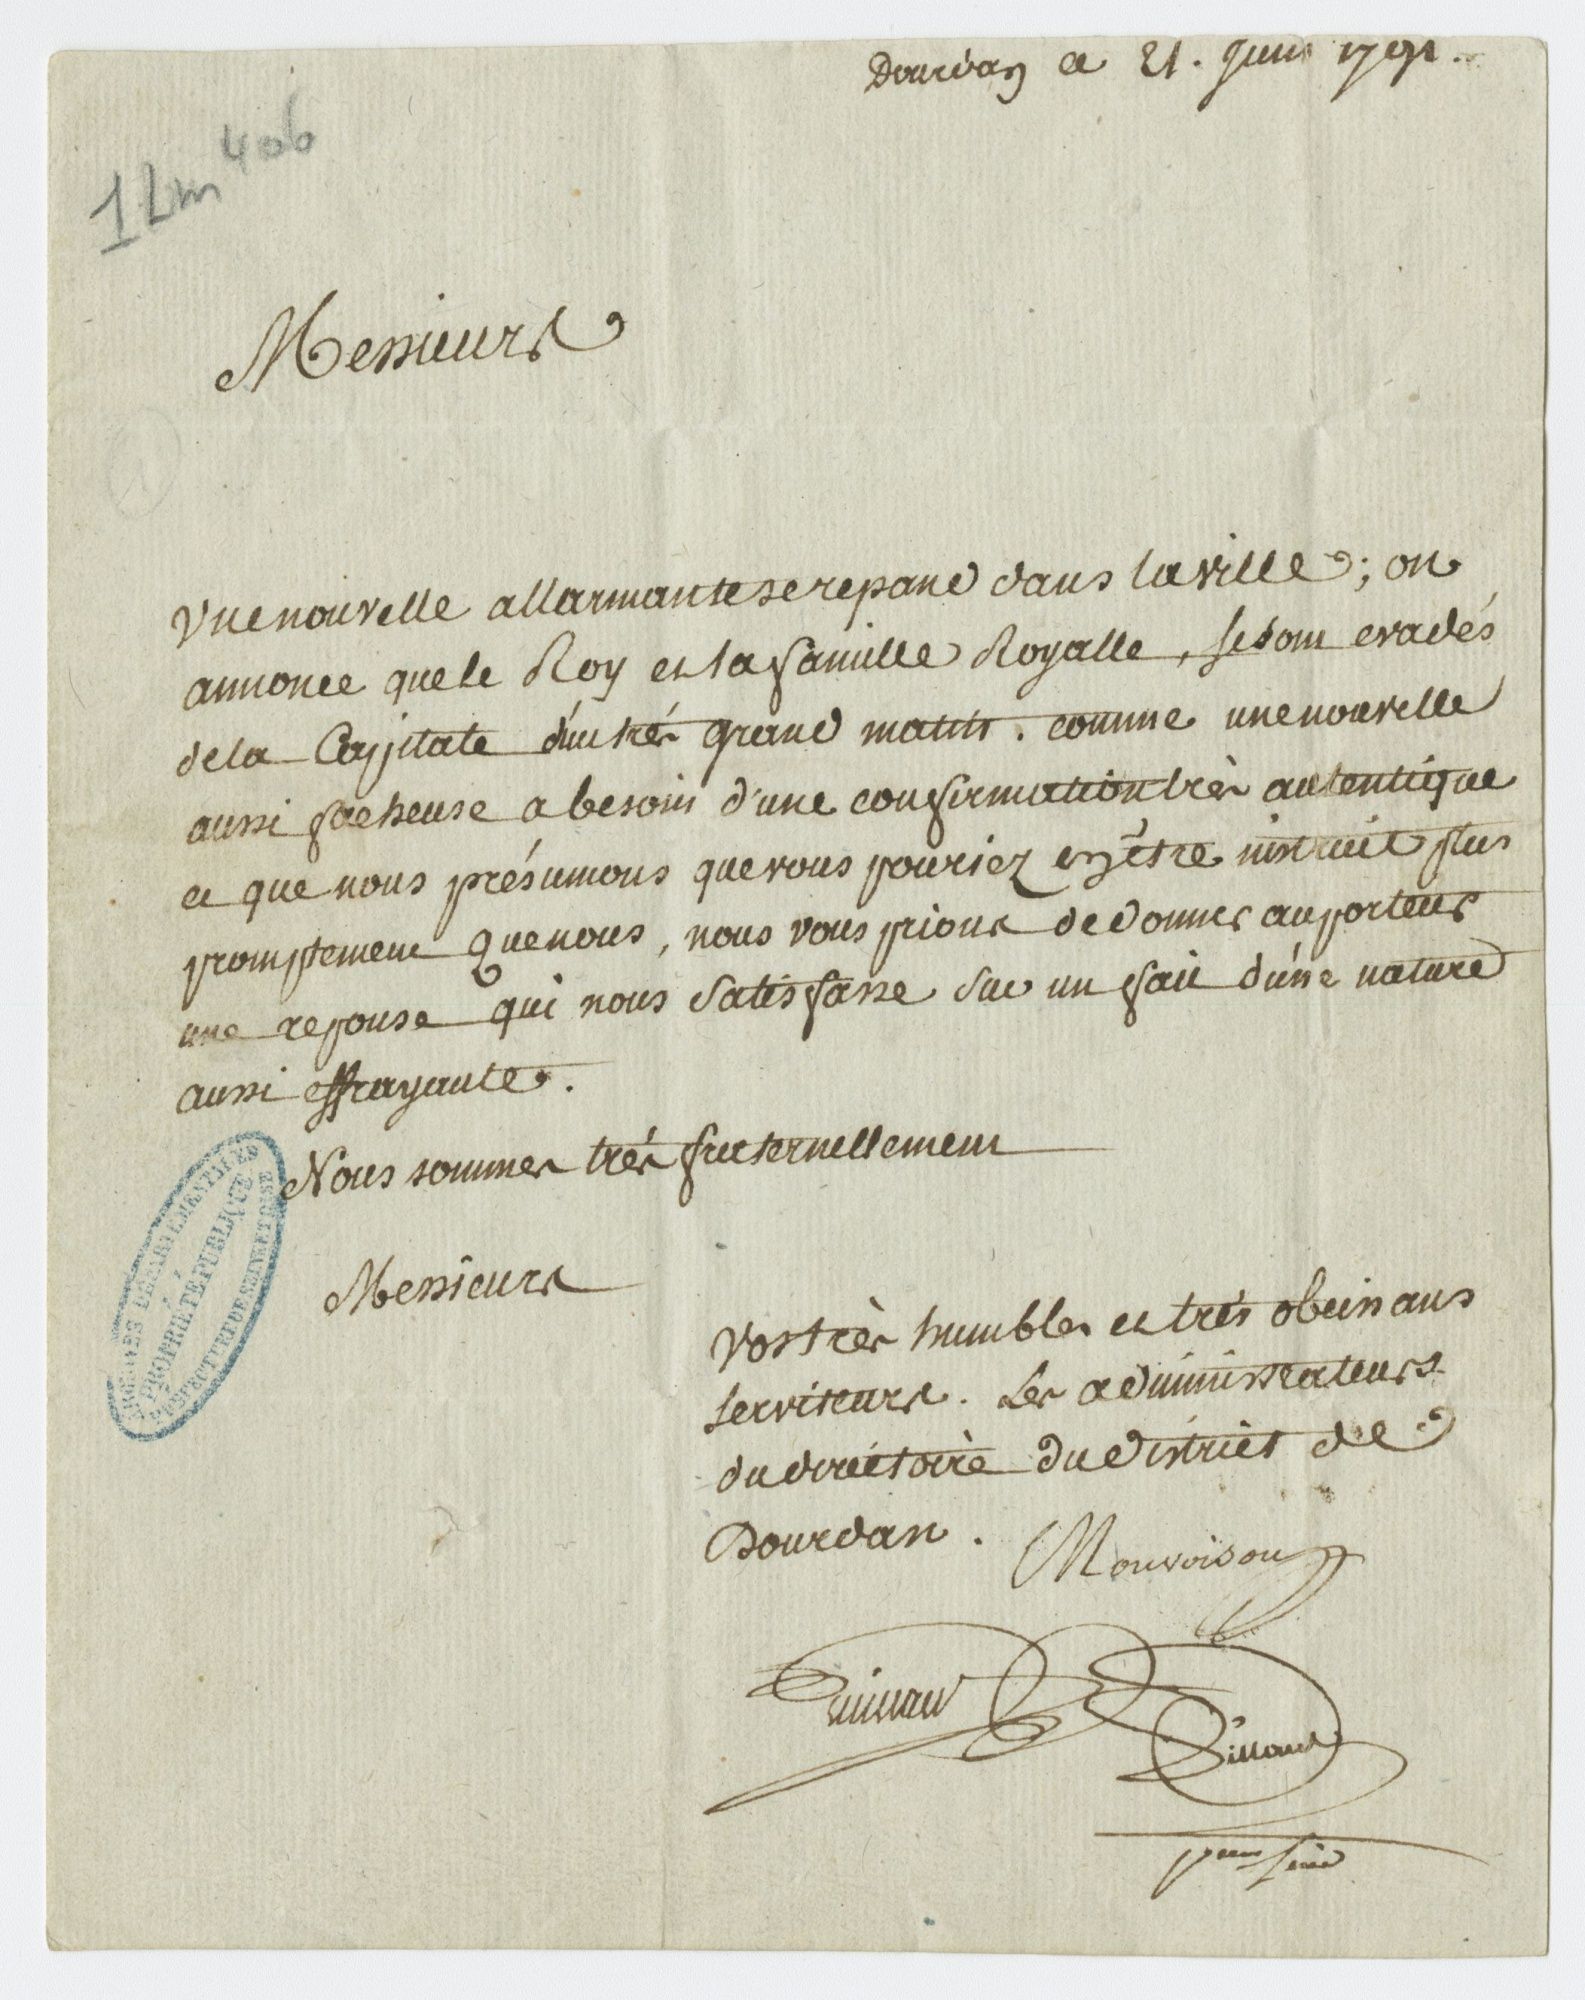 Dourdan ce 21. Juin 1791.
1 Lm 406
Messieurs
Une nouvelle allarmante se repand dans la ville ; on
annonce que le Roy et la famille Royalle, se sont evadés
de la Capitale d'un trés grand matin. comme une nouvelle
aussi facheuse a besoin d'une confirmation très autentique
et que nous présumons que vous pouriez en être instruit plus
promptement que nous, nous vous prions de donner au porteur
une reponse qui nous satisfasse sur un fait d'une nature
aussi effrayante.
Nous sommes trés fraternellement
Messieurs
Vos très humbles et trés obeissans
serviteurs. Les administrateurs
du diréctoire du district de
Dourdan.
ARCHIVES DÉPARTEMENTALES
PROPRIÉTÉ PUBLIQUE
PRÉFECTURE DE SEINE ET OISE